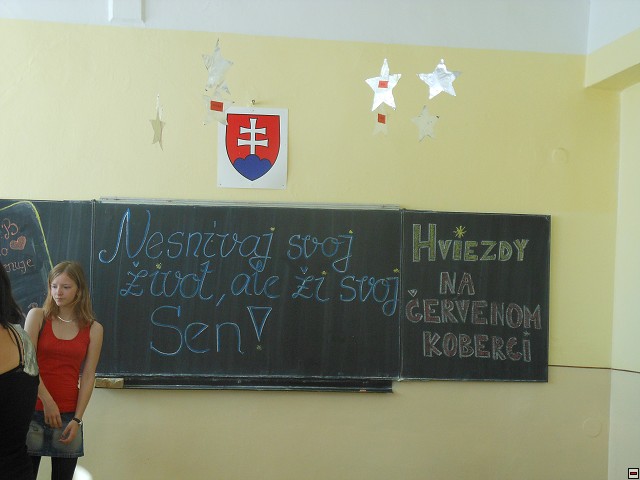 Nesnívaj svoj
život, ale ži svoj
Sen!
HVIEZDY
NA
ČERVENOM
KOBERCI